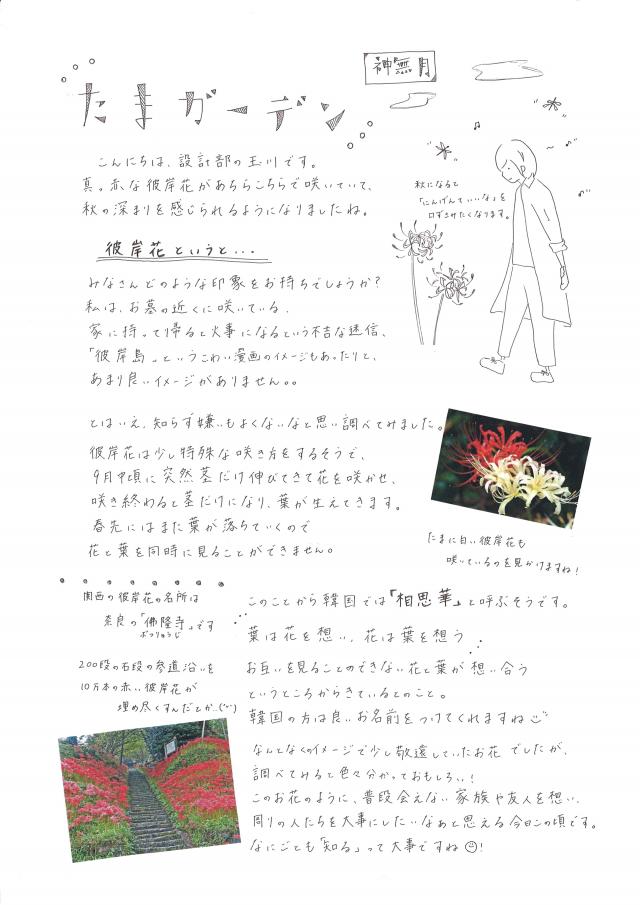 神無月
たまガーデン
こんにちは、設計部の玉川です。
真っ赤な彼岸花があちらこちらで咲いていて、
秋の深まりを感じられるようになりましたね。
秋になると
「にんげんっていいな」を
口ずさみたくなります。
彼岸花というと・・・
みなさんどのような印象をお持ちでしょうか?
私は、お墓の近くに咲いている、
家に持って帰ると火事になるという不吉な迷信、
「彼岸島」というこわい漫画のイメージもあったりと、
あまり良いイメージがありません。。
とはいえ、知らず嫌いもよくないなと思い調べてみました。
彼岸花は少し特殊な咲き方をするそうで、
9月中頃に突然茎だけ伸びてきて花を咲かせ、
咲き終わると茎だけになり、葉が生えてきます。
春先にはまた葉が落ちていくので
花と葉を同時に見ることができません。
たまに白い彼岸花も
咲いているのを見かけますね!
関西の彼岸花の名所は
奈良の「佛隆寺」です
ぶつりゅうじ
200段の石段の参道沿いを
10万本の赤い彼岸花が
埋め尽くすんだとか(^^)
このことから韓国では「相思華」と呼ぶそうです。
葉は花を想い、花は葉を想う
お互いを見ることのできない花と葉が想い合う
というところからきているとのこと。
韓国の方は良いお名前をつけてくれますね
なんとなくのイメージで少し敬遠していたお花でしたが、
調べてみると色々分かっておもしろい!
このお花のように、普段会えない家族や友人を想い、
周りの人たちを大事にしたいなぁと思える今日この頃です。
なにごとも「知る」って大事ですね☺!